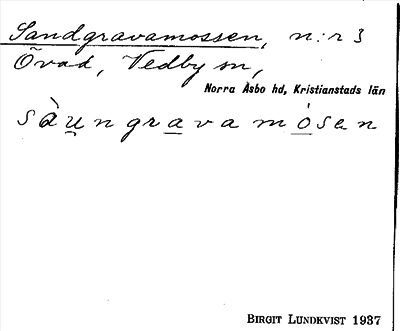 Sandgravamossen, n:r 3
Övad, Vedby sn,
Norra Åsbo hd, Kristianstads län
sàu̲ngra̲vamò̲sen
BIRGIT LUNDKVIST 1937